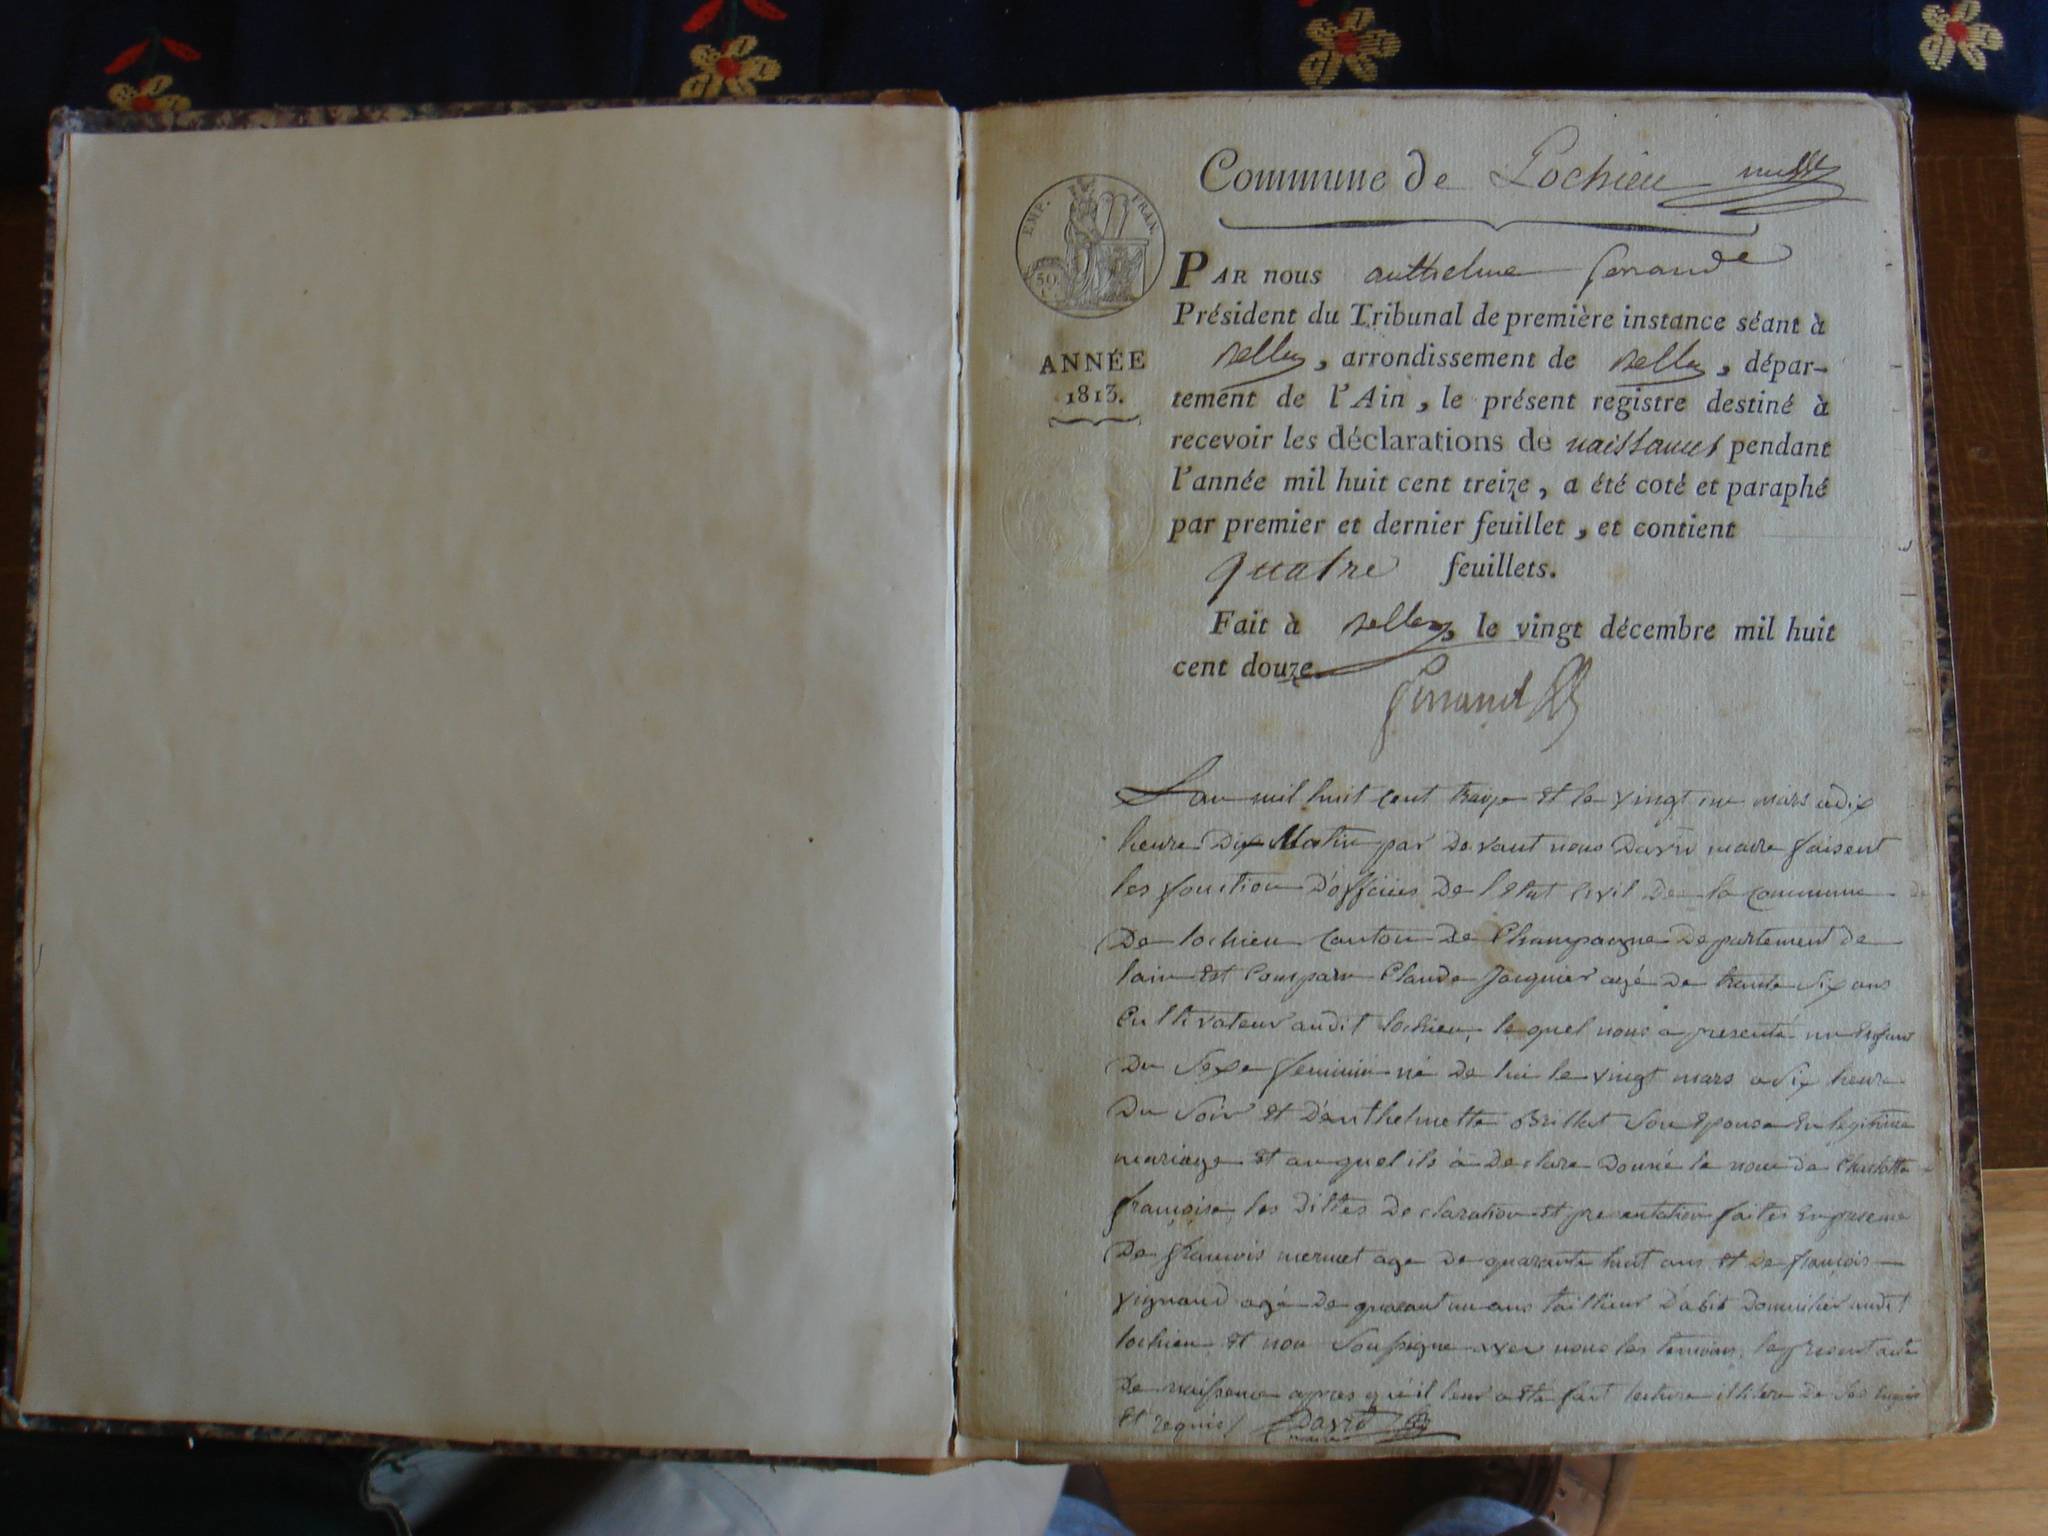 Commune de Lochieu
EMP. FRAN.
50
PAR nous anthelme
Président du Tribunal de première instance séant à
Belley, arrondissement de Belley, dépar-
ANNÉE
1813.
tement de l'Ain, le présent registre destiné à
recevoir les déclarations de naissances pendant
l'année mil huit cent treize, a été coté et paraphé
par premier et dernier feuillet, et contient
quatre feuillets.
Fait à Belley, le vingt décembre mil huit
cent douze
L'an mil huit cent treize et le vingt un mars a dix
heure Du Matin par Devant nous David maire faisent
les fonction D'officiés De l'Etat Civil De la Commune
De lochieu Canton De Champagne Departement de
lain Est Comparu Claude Jacquier agé De trente Six ans
Cultivateur audit lochieu, le quel nous a presenté un Enfant
Du Sexe feminin né De lui le vingt mars a Six heure
Du Soir Et D'anthelmette Brillat Son Epouse En legitime
mariage Et auquel ils à Declare Donné le nom de Charlotte
françoise, les Dittes Declaration Et presentation faites En presence
De françois mermet age De quarante huit ans Et De françois
vignand agé De quarant un ans taillieur D'abit Domicilier audit
lochieu Et non Soussigne avec nous les temoins, le present acte
De naissance apres qu'il leur a été fait lecture De
Et requis David
maire